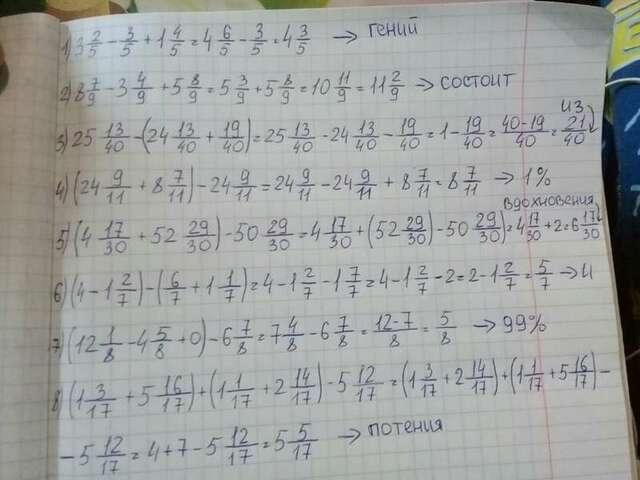 1) 3 2/5 - 3/5 + 1 4/5 = 4 6/5 - 3/5 = 4 3/5 → гений
2) 8 7/9 - 3 4/9 + 5 8/9 = 5 3/9 + 5 8/9 = 10 11/9 = 11 2/9 → состоит
3) 25 13/40 - (24 13/40 + 19/40) = 25 13/40 - 24 13/40 - 19/40 = 1 - 19/40 = 40-19/40 = 21/40 из
4) (24 9/11 + 8 7/11) - 24 9/11 = 24 9/11 - 24 9/11 + 8 7/11 = 8 7/11 → 1%
5) (4 17/30 + 52 29/30) - 50 29/30 = 4 17/30 + (52 29/30) - 50 29/30) = 4 17/30 + 2 = 6 17/30 вдохновения
6) (4 - 1 2/7) - (6/7 + 1 1/7) = 4 - 1 2/7 - 1 7/7 = 4 - 1 2/7 - 2 = 2 - 1 2/7 = 5/7 → и
7) (12 1/8 - 4 5/8 + 0) - 6 7/8 = 7 4/8 - 6 7/8 = 12-7/8 = 5/8 → 99%
8) (1 3/17 + 5 16/17) + (1 1/17 + 2 14/17) - 5 12/17 = (1 3/17 + 2 14/17) + (1 1/17 + 5 16/17) -
- 5 12/17 = 4 + 7 - 5 12/17 = 5 5/17 → потения